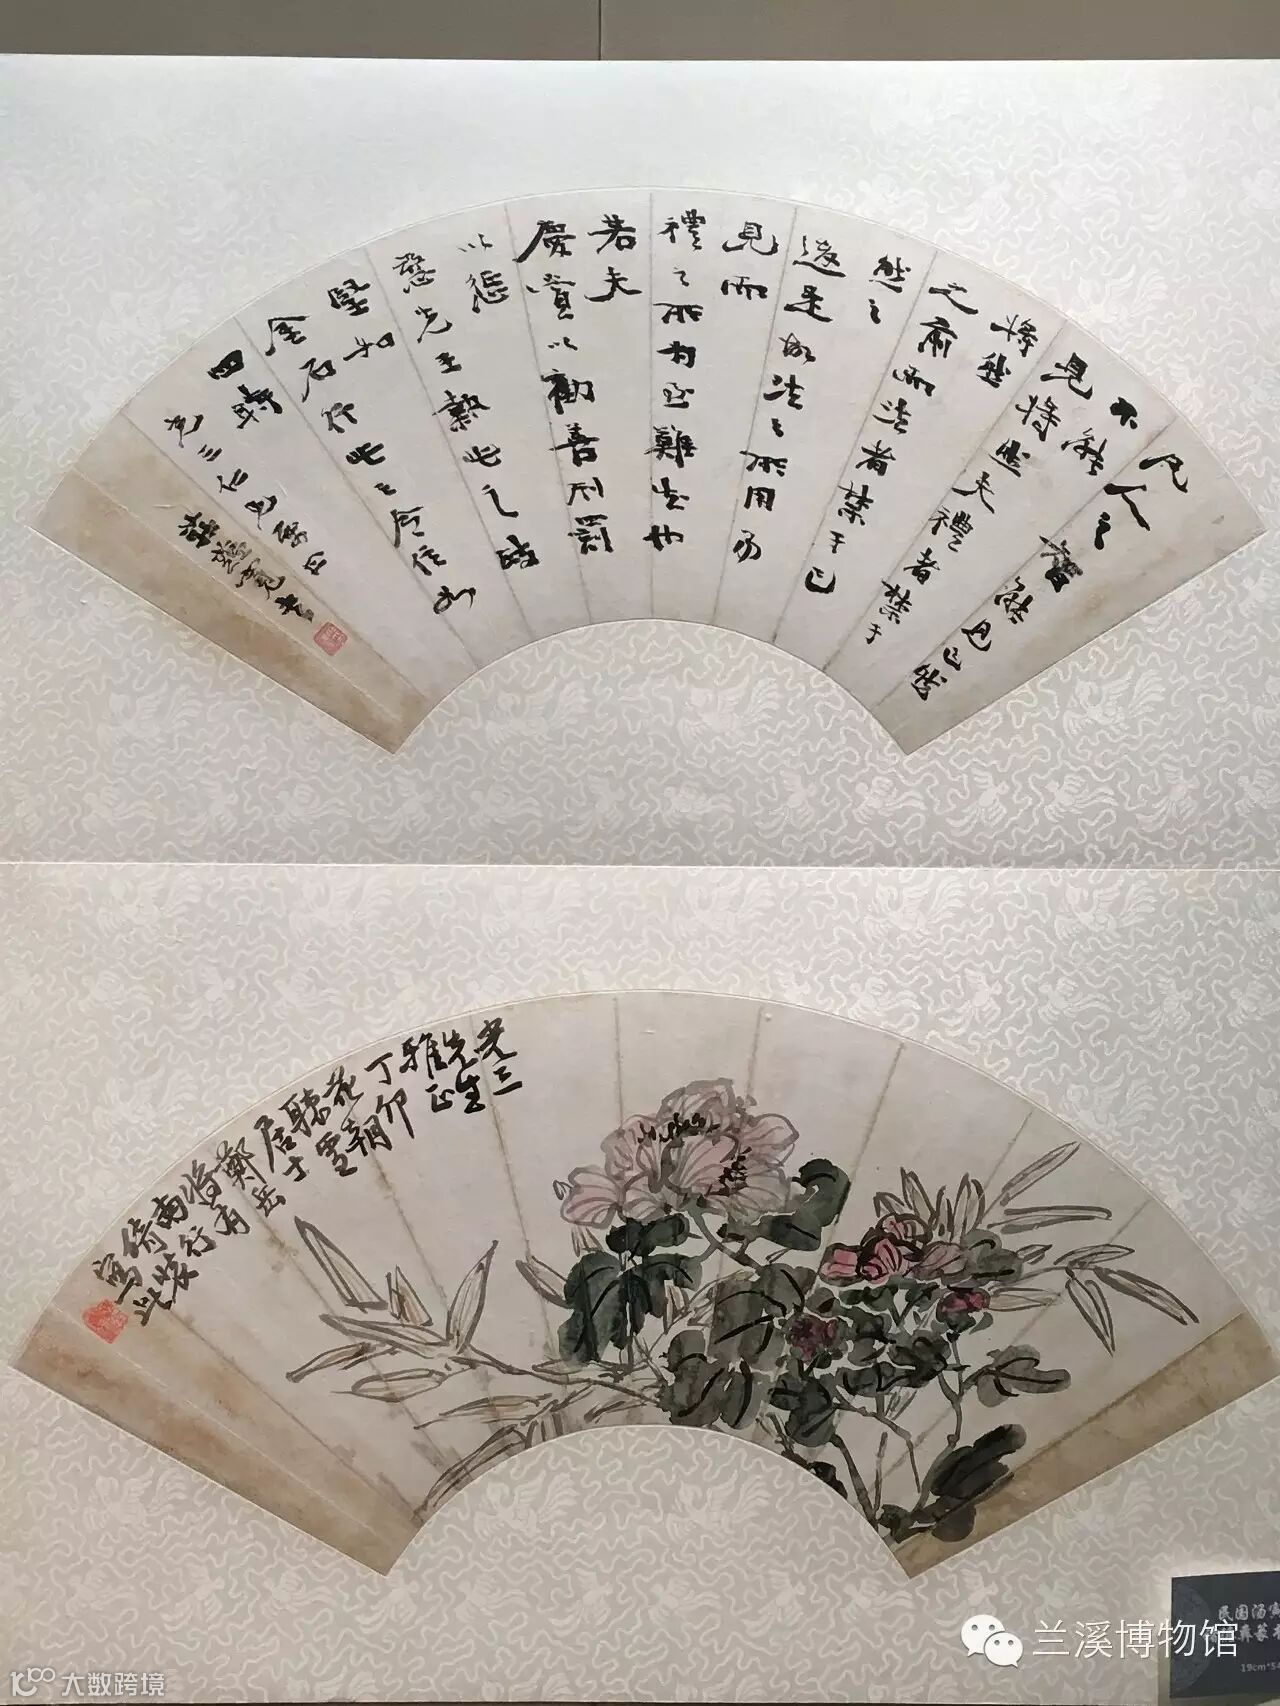 凡人之智能見已然
不能見
將然夫禮者禁于
將然
之前而法者禁于已
然之
後是故法之所用易
見而
禮之所為至難知也
若夫
慶賞以勸善刑罰
以懲
惡先王執此之政
堅如
金石行此之令信如
四時
光三仁兄屬正
書
光三
先生
雅正
丁卯
花朝
聽雪
居士
鄭岳
將有
南行
倚裝
寫此
兰溪博物馆
大数跨境